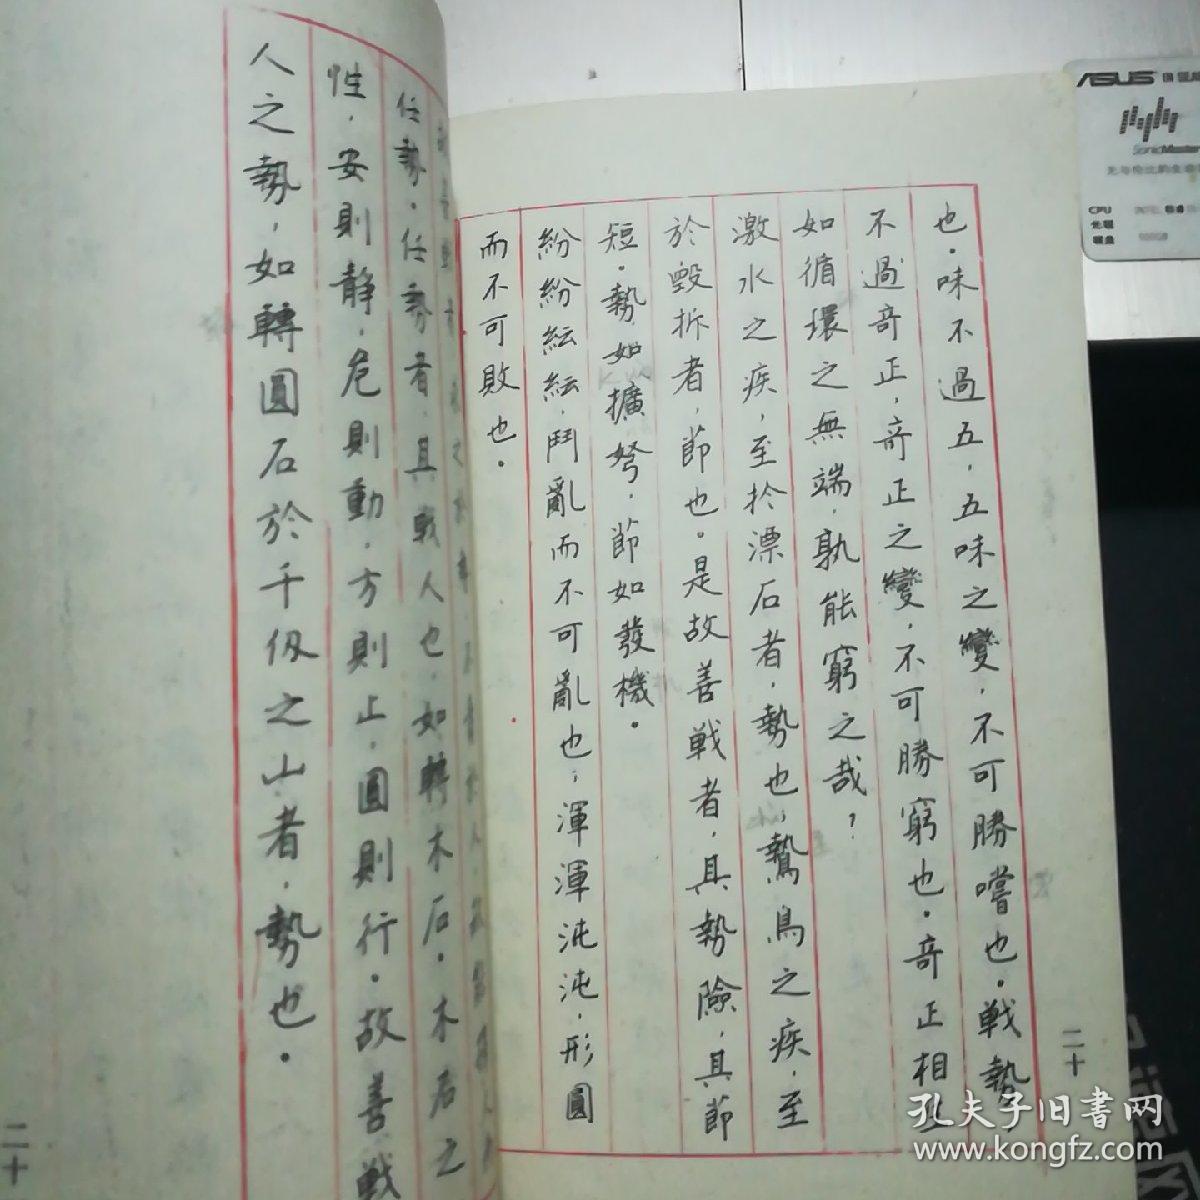 也。味不過五，五味之變，不可勝嚐也。戰勢
不過奇正，奇正之變，不可勝窮也。奇正相
如循環之無端，孰能窮之哉？
激水之疾，至於漂石者，勢也，鷙鳥之疾，至
於毀折者，節也。是故善戰者，其勢險，其節
短。勢如擴弩，節如發機。
紛紛紜紜，鬥亂而不可亂也；渾渾沌沌，形圓
而不可敗也。
二十
任勢。任勢者，其戰人也，如轉木石。木石之
性，安則靜，危則動，方則止，圓則行。故善戰
人之勢，如轉圓石於千仞之山者，勢也。
二十
ASUS
SonicMaster
CPU
孔夫子旧书网
www.kongfz.com